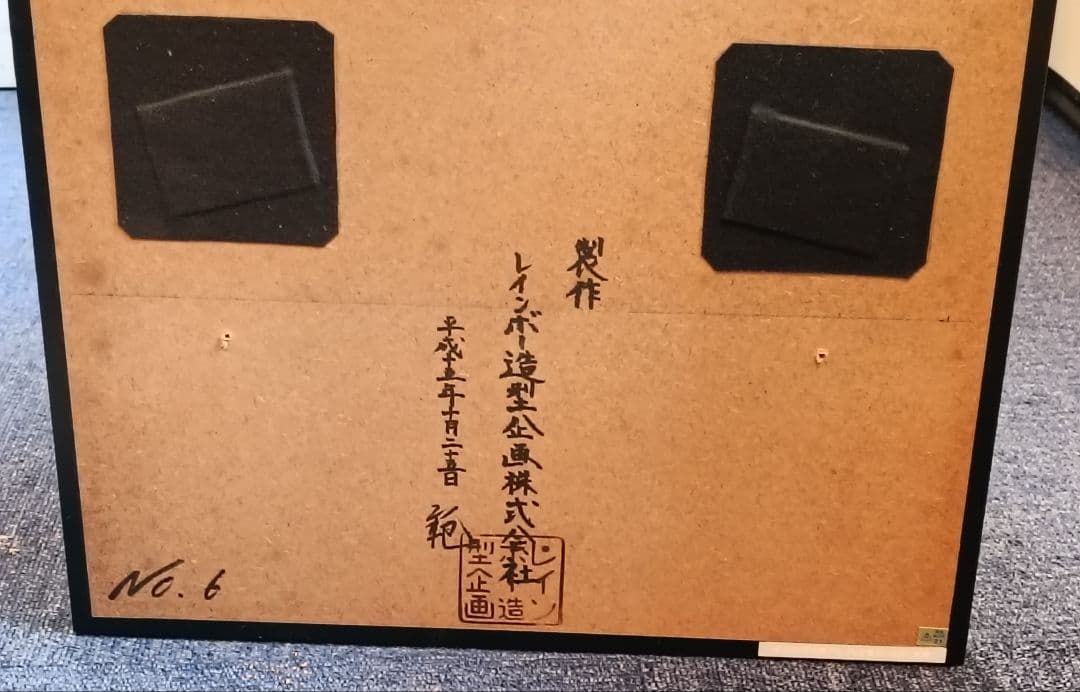 製作
レインボー造型企画株式会社
平成十五年十月二十五日
範
レインボー造型企画
No. 6